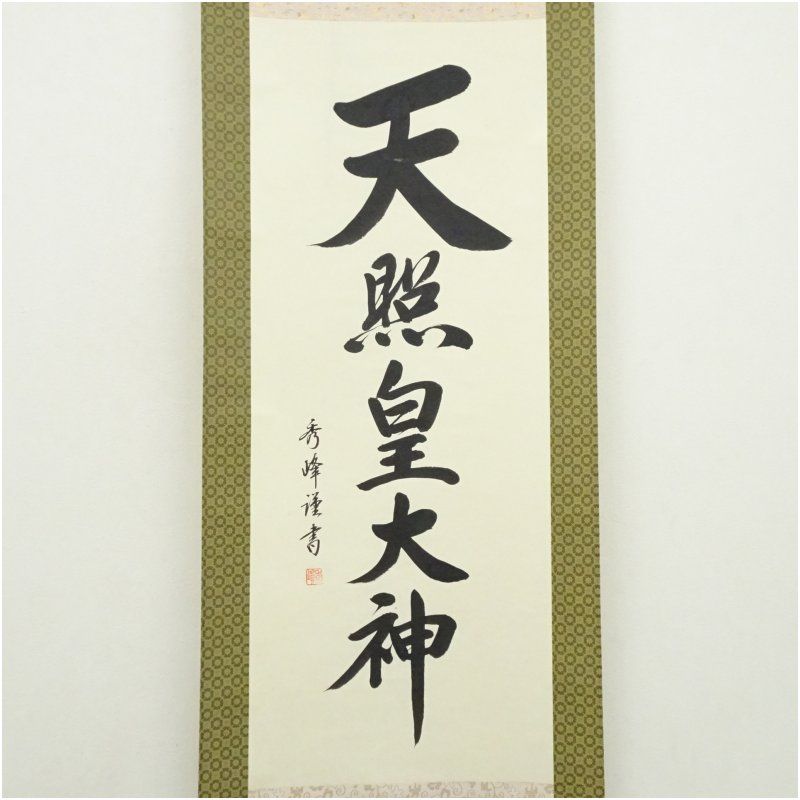 天照皇大神
秀峰謹書